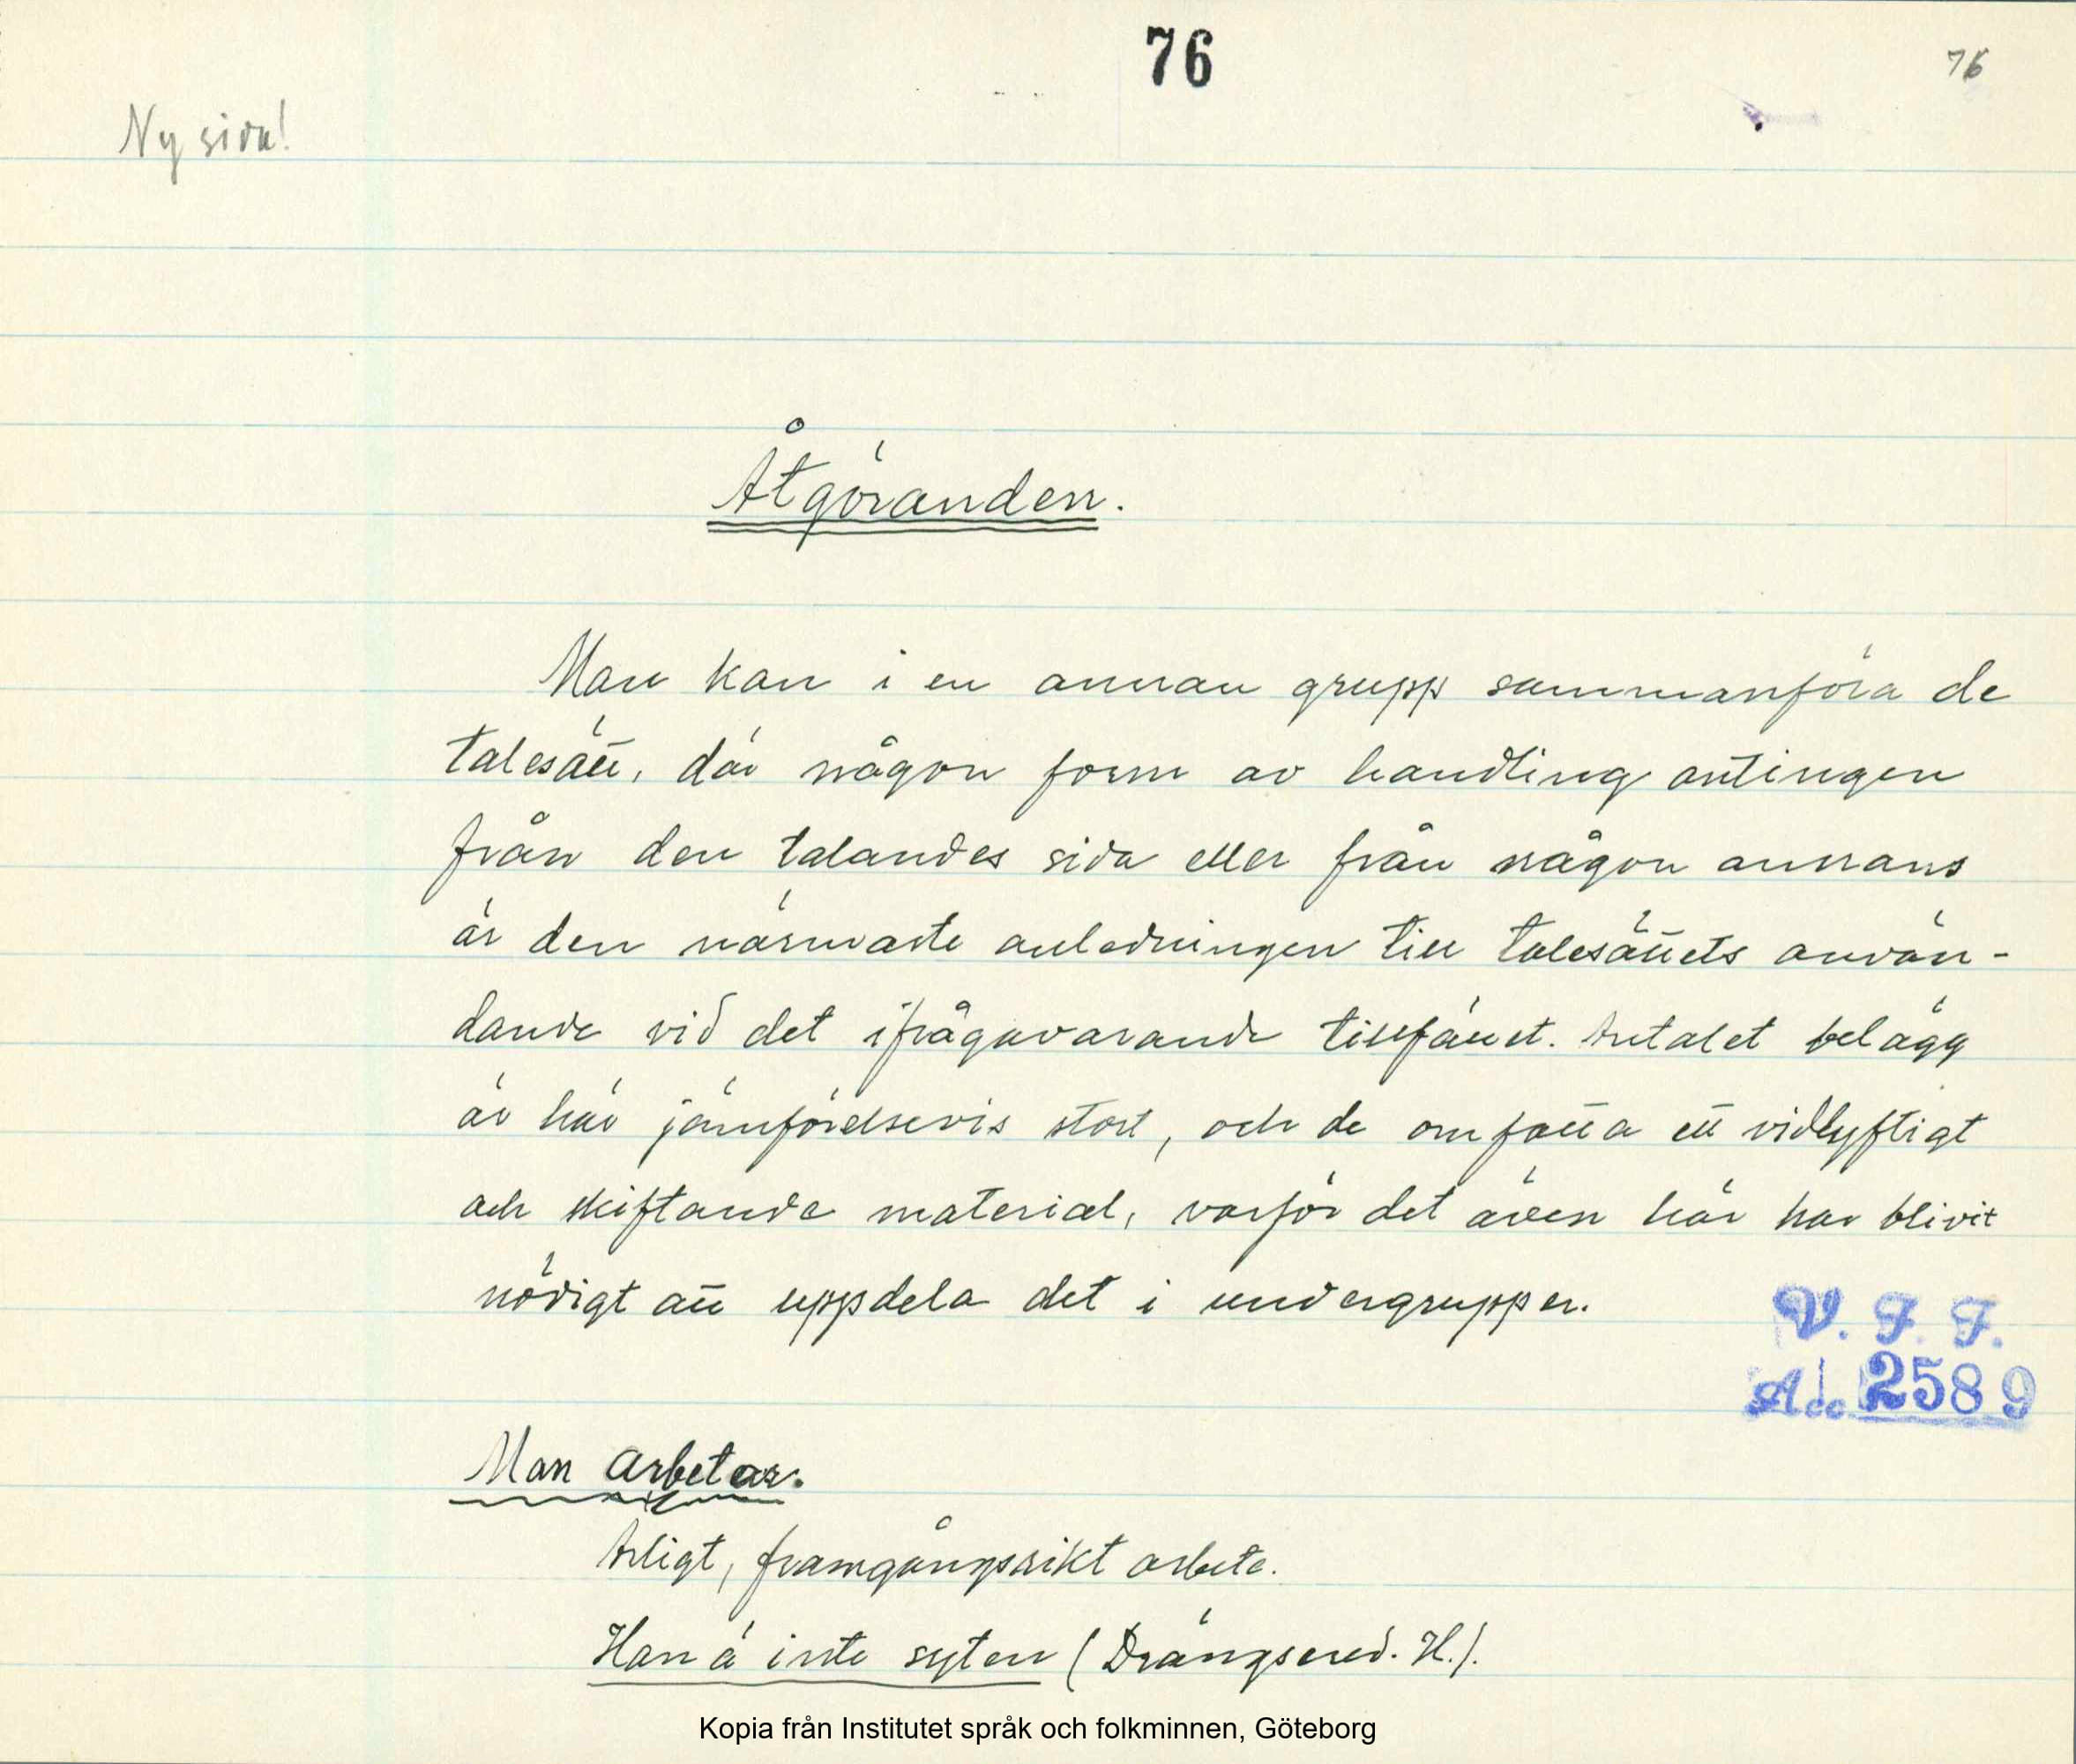 76
76
Ny sida!
Åtgöranden.
Man kan i en annan grupp sammanföra de
talesätt, där någon form av handling antingen
från den talandes sida eller från någon annans
är den närmaste anledningen till talesättets använ-
dande vid det ifrågavarande tillfället. Antalet belägg
är här jämförelsevis stort, och de omfatta ett vidlyftigt
och skiftande material, varför det även här har blivit
nödigt att uppdela det i undergrupper.
V. F. F.
Acc 2589
Man arbetar.
Arligt, framgångsrikt arbete.
Han ä inte syten (Drängsered. H.).
Kopia från Institutet språk och folkminnen, Göteborg